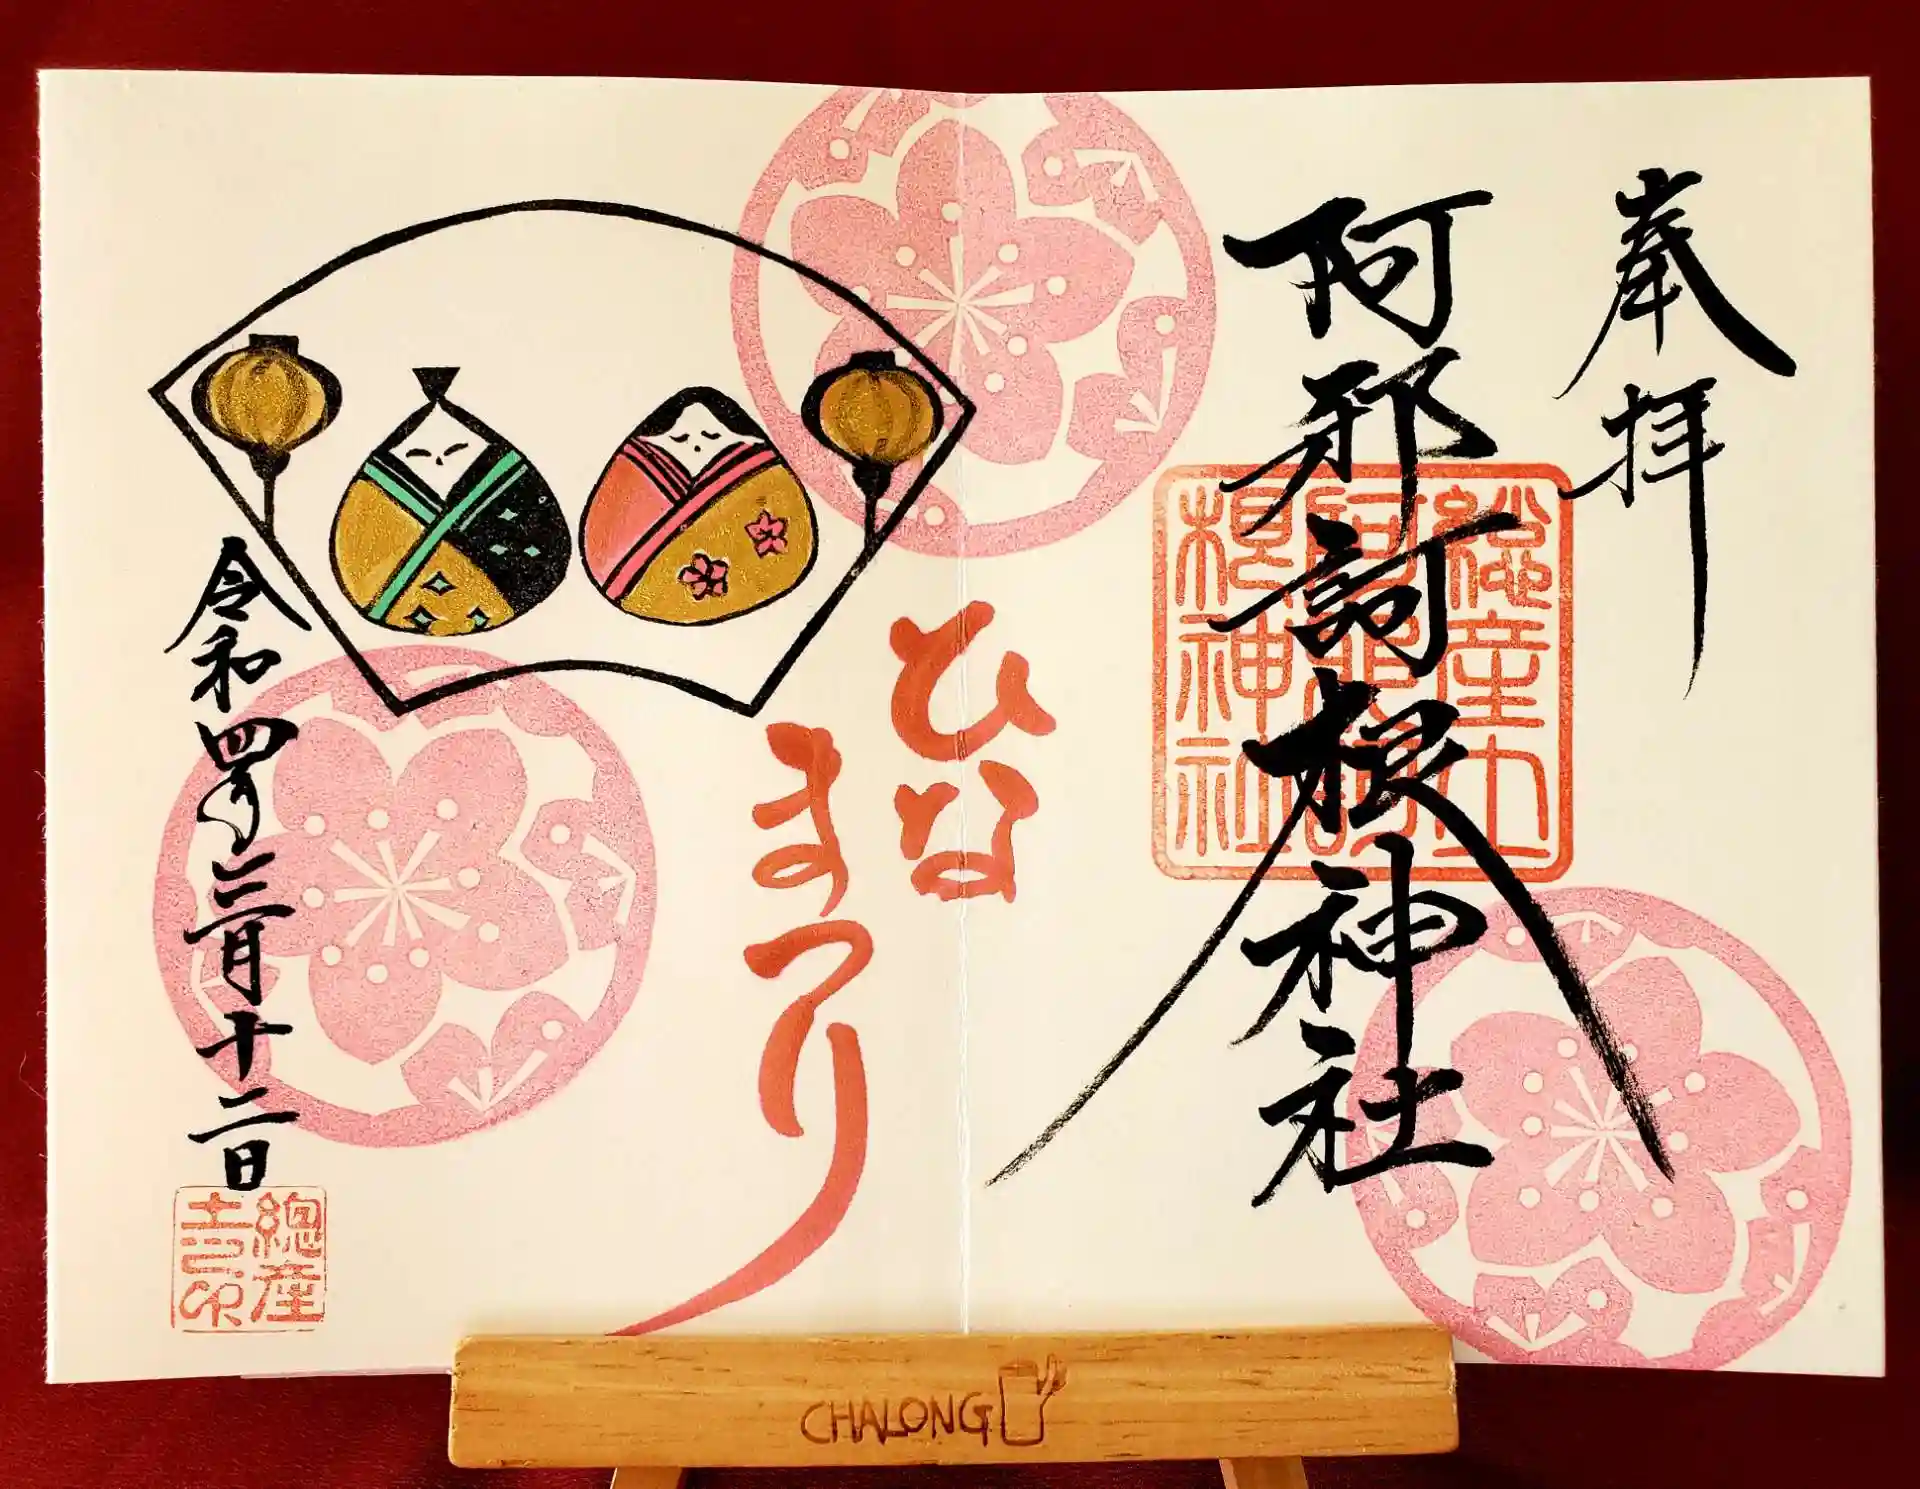 奉拝
阿邪訶根神社
総産土
阿邪訶
根神社
ひな
まつり
令和四年三月十二日
總産
土之印
CHALONG